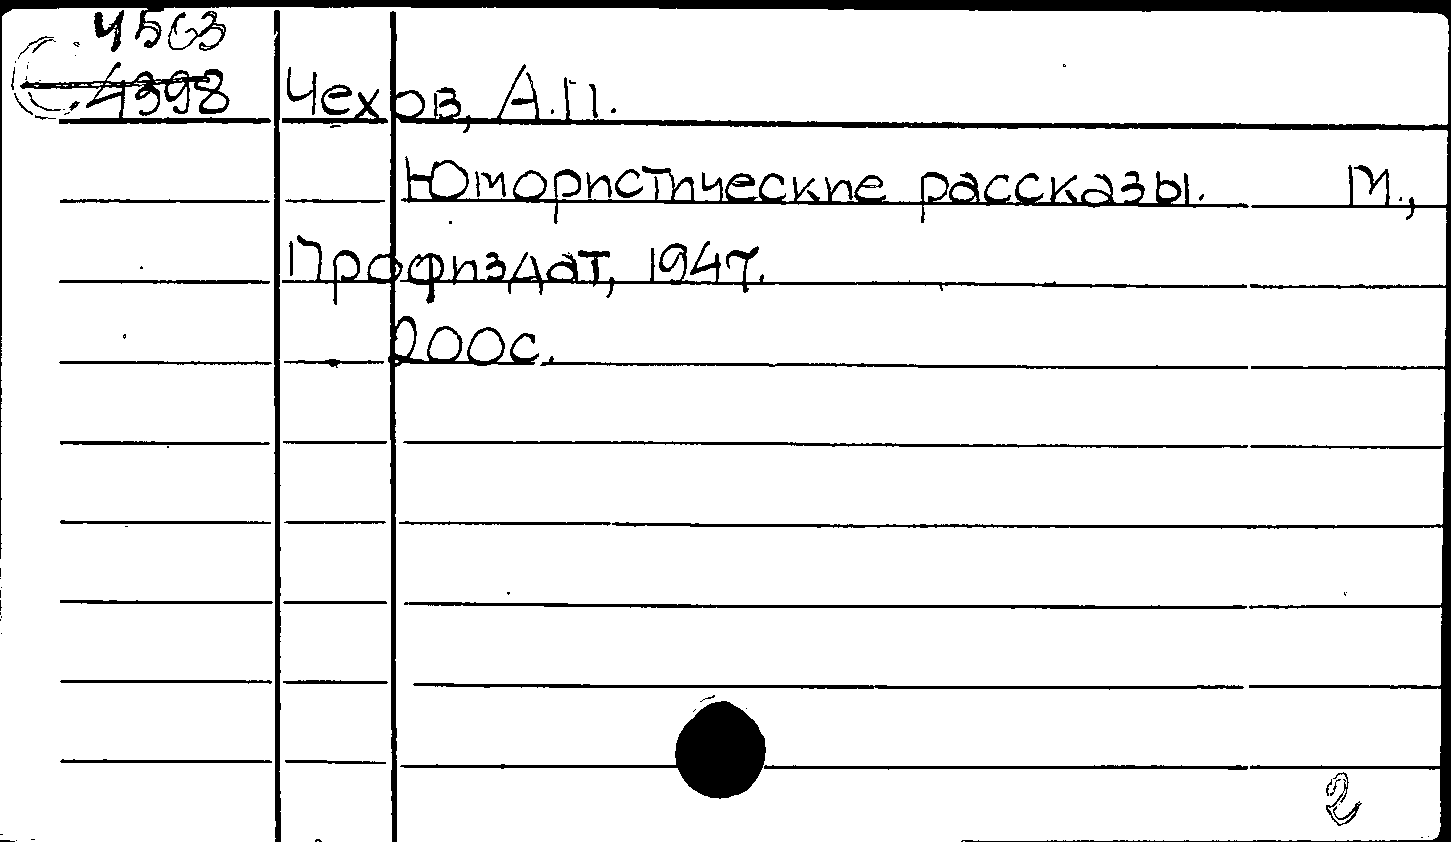 4563
4398 Чехов, А.П.
Юмористические рассказы. М.,
Профиздат, 1947.
200с.
2